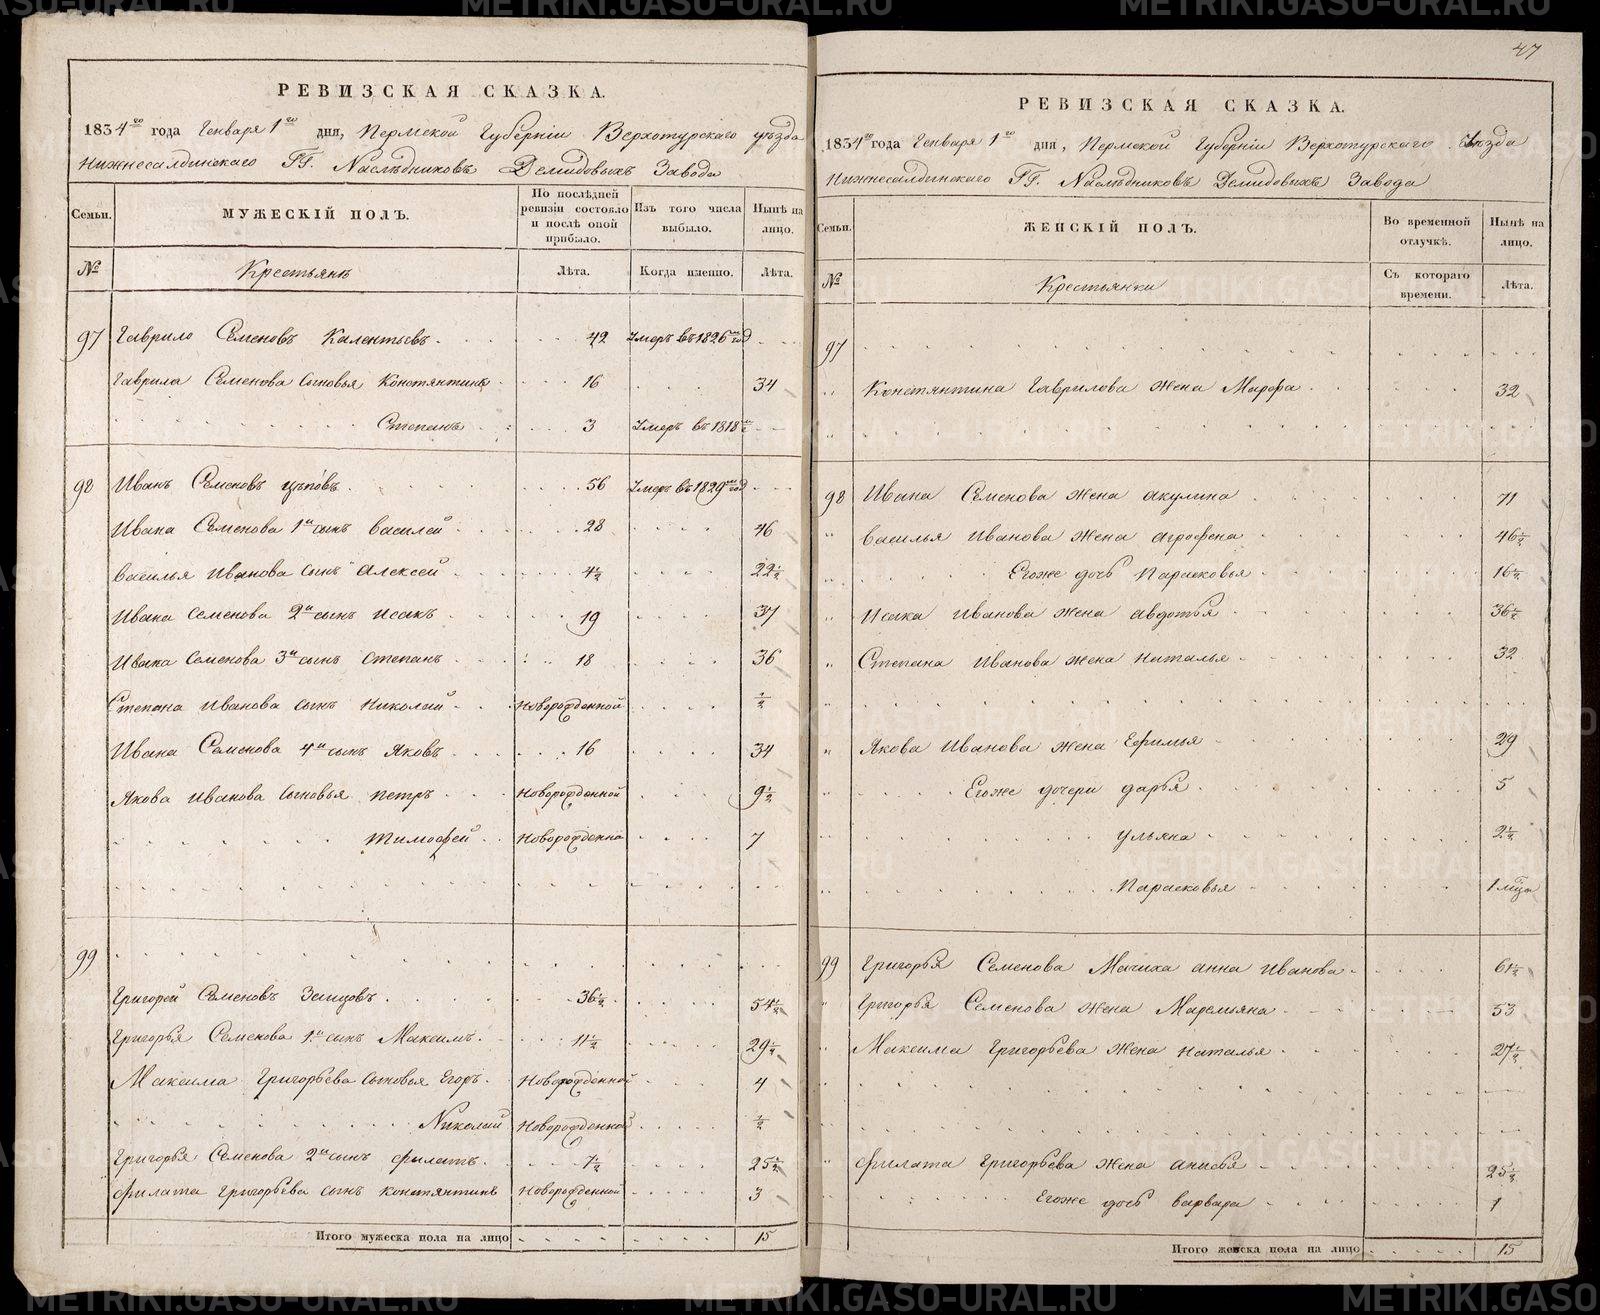 47
РЕВИЗСКАЯ СКАЗКА.
1834го года Генваря 1го дня, Пермской Губерніи Верхотурскаго уѣзда
Нижнесалдинскаго ГГ. Наслѣдниковъ Демидовыхъ Завода
Семьи. МУЖЕСКІЙ ПОЛЪ. По послѣдней ревизіи состояло и послѣ оной прибыло. Изъ того числа выбыло. Нынѣ на лицо.
№ Крестьянъ Лѣта. Когда именно. Лѣта.
97 Гаврило Семеновъ Калентьевъ 42 Умеръ въ 1826м год
Гаврила Семенова сыновья Констянтинъ 16 34
Степанъ 3 Умеръ въ 1818м
98 Иванъ Семеновъ Цѣповъ 56 Умеръ въ 1829м год
Ивана Семенова 1й сынъ Василей 28 46
Василья Иванова сынъ Алексей 4½ 22½
Ивана Семенова 2й сынъ Исакъ 19 37
Ивана Семенова 3й сынъ Степанъ 18 36
Степана Иванова сынъ Николай Новорожденной ½
Ивана Семенова 4й сынъ Яковъ 16 34
Якова Иванова сыновья Петръ Новорожденной 9½
Тимофей Новорожденна 7
99
Григорей Семеновъ Зайцовъ 36½ 54½
Григорья Семенова 1й сынъ Максимъ 11½ 29½
Максима Григорьева сыновья Егоръ Новорожденной 4
Николай Новорожденной ½
Григорья Семенова 2й сынъ Филатъ 7½ 25½
Филата Григорьева сынъ Констянтинъ Новорожденной 3
Итого мужеска пола на лицо 15
РЕВИЗСКАЯ СКАЗКА.
1834го года Генваря 1го дня, Пермской Губерніи Верхотурскаго Уѣзда
Нижнесалдинскаго ГГ. Наслѣдниковъ Демидовыхъ Завода
Семьи. ЖЕНСКІЙ ПОЛЪ. Во временной отлучкѣ. Нынѣ на лицо.
№ Крестьянки Съ котораго времени. Лѣта.
97
Констянтина Гаврилова жена Марфа 32
98 Ивана Семенова жена Акулина 71
Василья Иванова жена Агрофена 46½
Егоже дочь Парасковья 16½
Исака Иванова жена Авдотья 36½
Степана Иванова жена Наталья 32
Якова Иванова жена Ефимья 29
Егоже дочери Дарья 5
Ульяна 2½
Парасковья 1 мѣсц
99 Григорья Семенова Мачиха Анна Иванова 61½
Григорья Семенова жена Маремьяна 53
Максима Григорьева жена Наталья 27½
Филата Григорьева жена Анисья 25½
Егоже дочь Варвара 1
Итого женска пола на лицо 15
METRIKI.GASO-URAL.RU